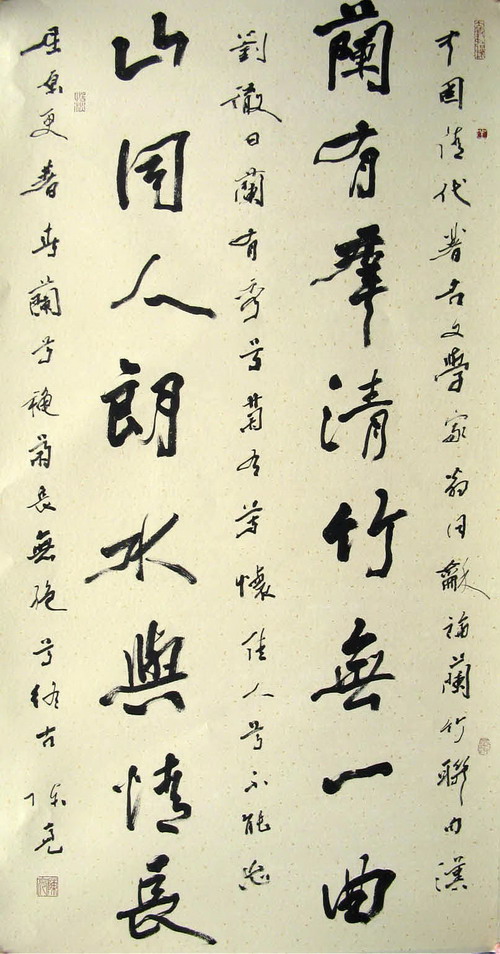 中国清代著名文學家翁同龢蘭竹聯漢
蘭有羣清竹無一曲
劉徹曰蘭有秀兮菊有芳懷佳人兮不能忘
山同人朗水與情長
屈原更著春蘭兮穐菊長無絕兮終古 陳